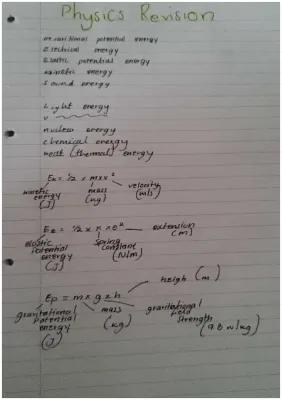 Physics Revision
gravitational potential energy
Electrical energy
Elastic potential energy
kinetic energy
Sound energy
Light energy
nuclear energy
chemical energy
heat (thermal) energy
Ek = 1/2 x m x v²
kinetic energy (J)
mass (kg)
velocity (m/s)
Ee = 1/2 x k x e²
elastic potential energy (J)
spring constant (N/m)
extension (m)
Ep = m x g x h
gravitational potential energy (J)
mass (kg)
gravitational field strength (9.8 N/kg)
heigh (m)